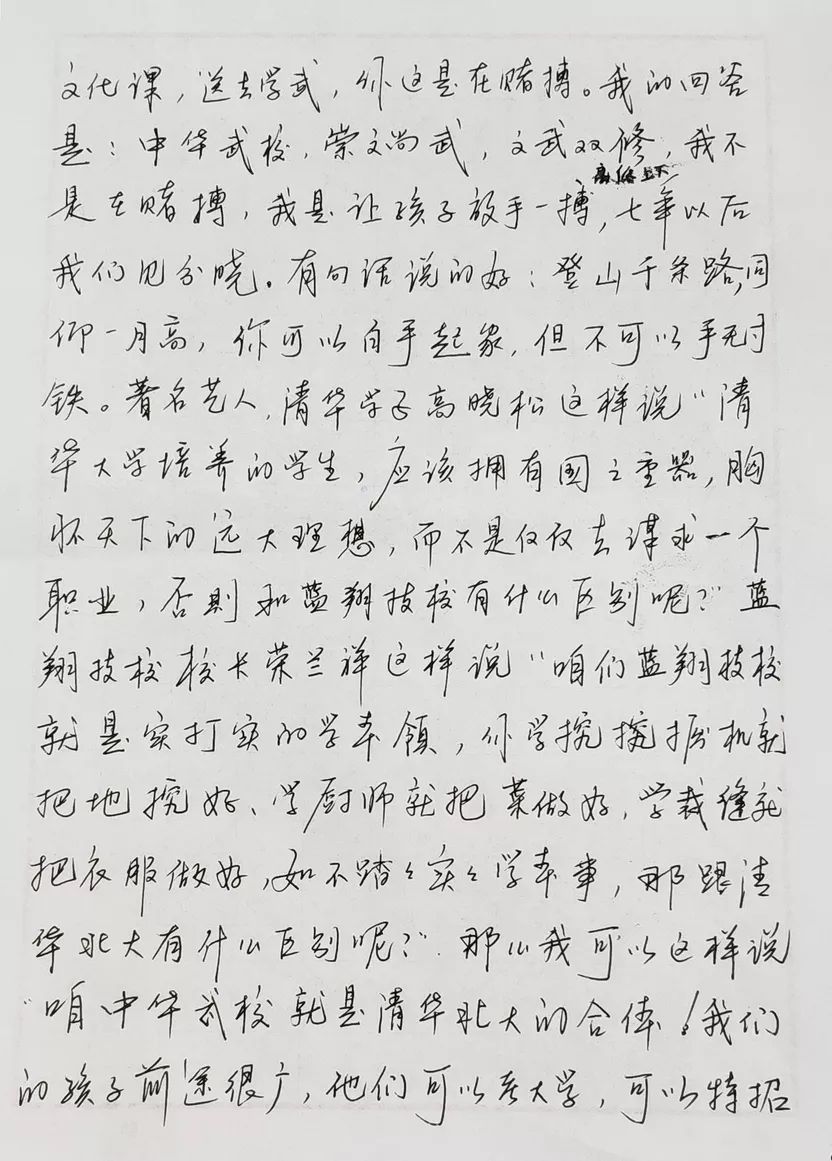 文化课，送去学武，你这是在赌搏。我的回答
是：中华武校，崇文尚武，文武双修，我不
是在赌搏，我是让孩子放手一搏，七年以后
我们见分晓。有句话说的好：登山千条路，同
仰一月高，你可以白手起家，但不可以手无寸
铁。著名艺人，清华学子高晓松这样说"清
华大学培养的学生，应该拥有国之重器，胸
怀天下的远大理想，而不是仅仅去谋求一个
职业，否则和蓝翔技校有什么区别呢？"蓝
翔技校校长荣兰祥这样说"咱们蓝翔技校
就是实打实的学本领，你学挖挖掘机就
把地挖好、学厨师就把菜做好，学裁缝就
把衣服做好，如不踏々实々学本事，那跟清
华北大有什么区别呢？"那么我可以这样说
"咱中华武校就是清华北大的合体！我们
的孩子前途很广，他们可以考大学，可以特招